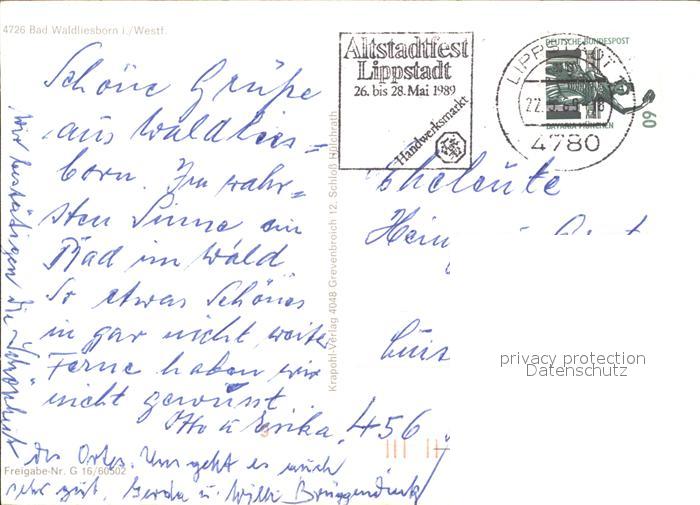 4726 Bad Waldliesborn i./Westf.
Schöne Grüße
aus Waldlies=
born. Im wahr=
sten Sinne ein
Bad im Wald
So etwas Schönes
in gar nicht weiter
Ferne haben wir
nicht gewusst.
Otto u. Erika.
Wir bestätigen die Schönheit
des Ortes. Uns geht es auch
sehr gut. Gerda u. Willi Brüggendiek
Freigabe-Nr. G 16/60502
Krapohl-Verlag 4048 Grevenbroich 12, Schloß Hülchrath
Altstadtfest
Lippstadt
26. bis 28. Mai 1989
Handwerksmarkt
LIPPSTADT
4780
DEUTSCHE BUNDESPOST
BAVARIA MÜNCHEN
60
Eheleute
Hein
Luis
456
privacy protection
Datenschutz